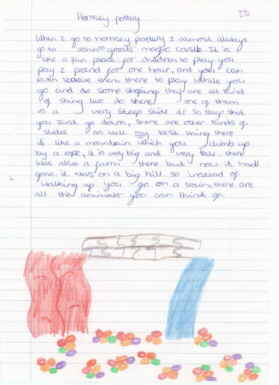 Hornsey portey
When I go to hornsey portery I almost always
go to some great magic castle. It is
like a fun place for children to play you
pay 2 pound for one hour, and you can
even leave even there to play while you
go and do some shoping they are all kind
of thing we do there one of them
is a very steep slide it so steep that
you just go down, there are other kinds of
slides as well my best thing there
is like a mountain which you climb up
by a rope, it is very big and very tall. there
was also a farm there but now it had
gone it was on a big hill. so instead of
walking up you go on a train, there are
all the animals you can think of.